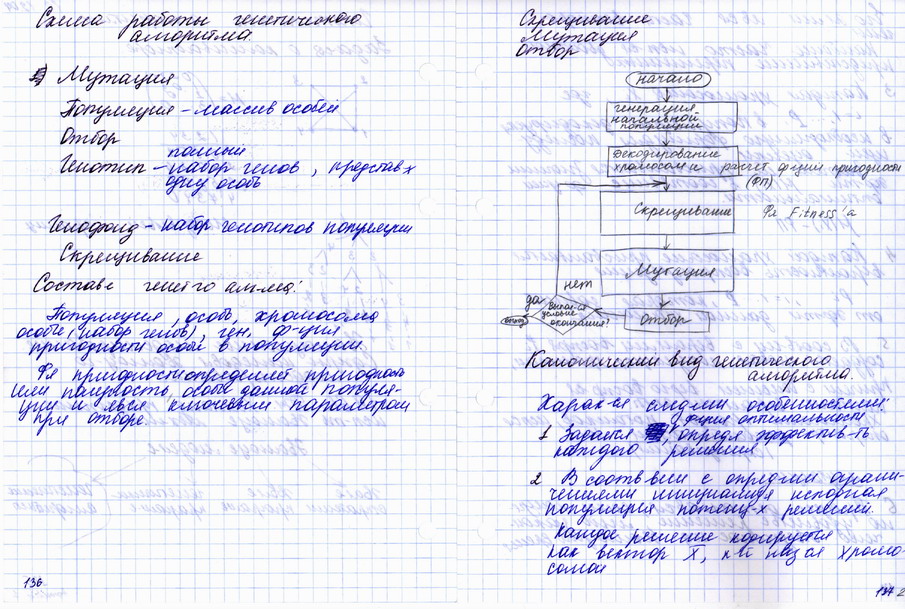 Схема работы генетического
алгоритма
Мутация
Популяция – массив особей
Отбор
полный
Генотип – набор генов, представ-х
одну особь
Генофонд – набор генотипов популяции
Скрещивание
Состав генет-го алг-ма:
Популяция, особь, хромосома
особи, (набор генов), ген, ф-ция
пригодности особи в популяции.
Фя пригодности определяет пригодность
или
особи данной популя-
ции и явл ключевым параметром
при отборе.
136
Скрещивание
Мутация
Отбор
начало
генерация
начальной
популяции
Декодирование
хромосом и расчёт ф-ции пригодности
(ФП)
Скрещивание
Фя Fitness'а
Мутация
нет
да
условие
окончания?
Отбор
Канонический вид генетического
алгоритма.
Харак-ся след-ми особенностями:
ф-ция оптимальности
1 Задаётся, определ эффектив-ть
каждого решения
2 В соотв-вии с опред-ми ограни-
чениями исходная
популяция потенц-х решений.
Каждое решение кодируется
как вектор X, к-й назся хромо-
сомой
137